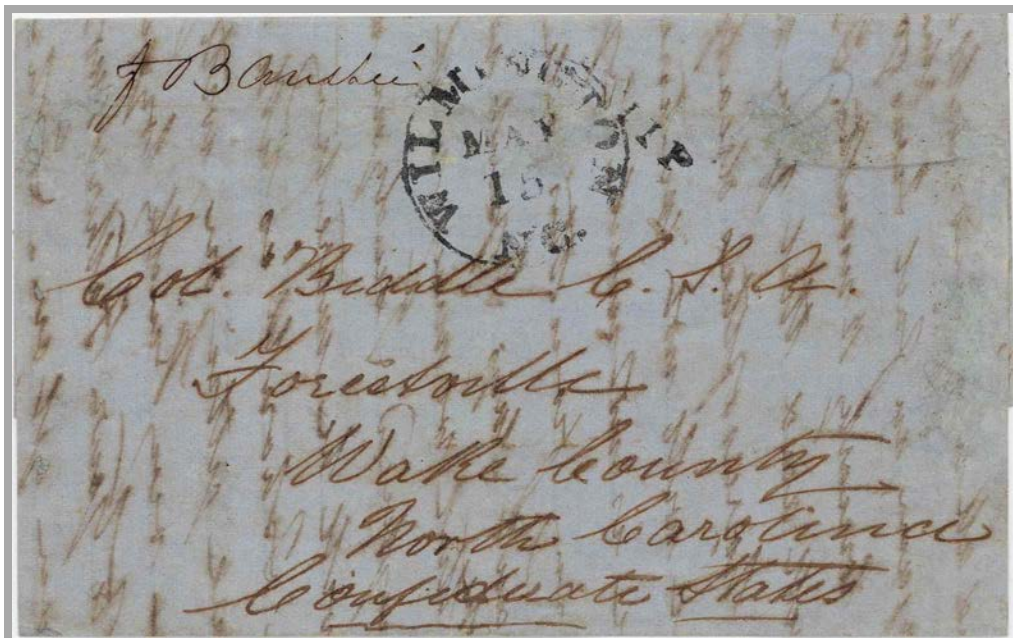 p Banshee
WILMINGTON
SHIP
MAY
15
N.C.
Col. Biddle C. S. A.
Forestville
Wake County
North Carolina
Confederate States